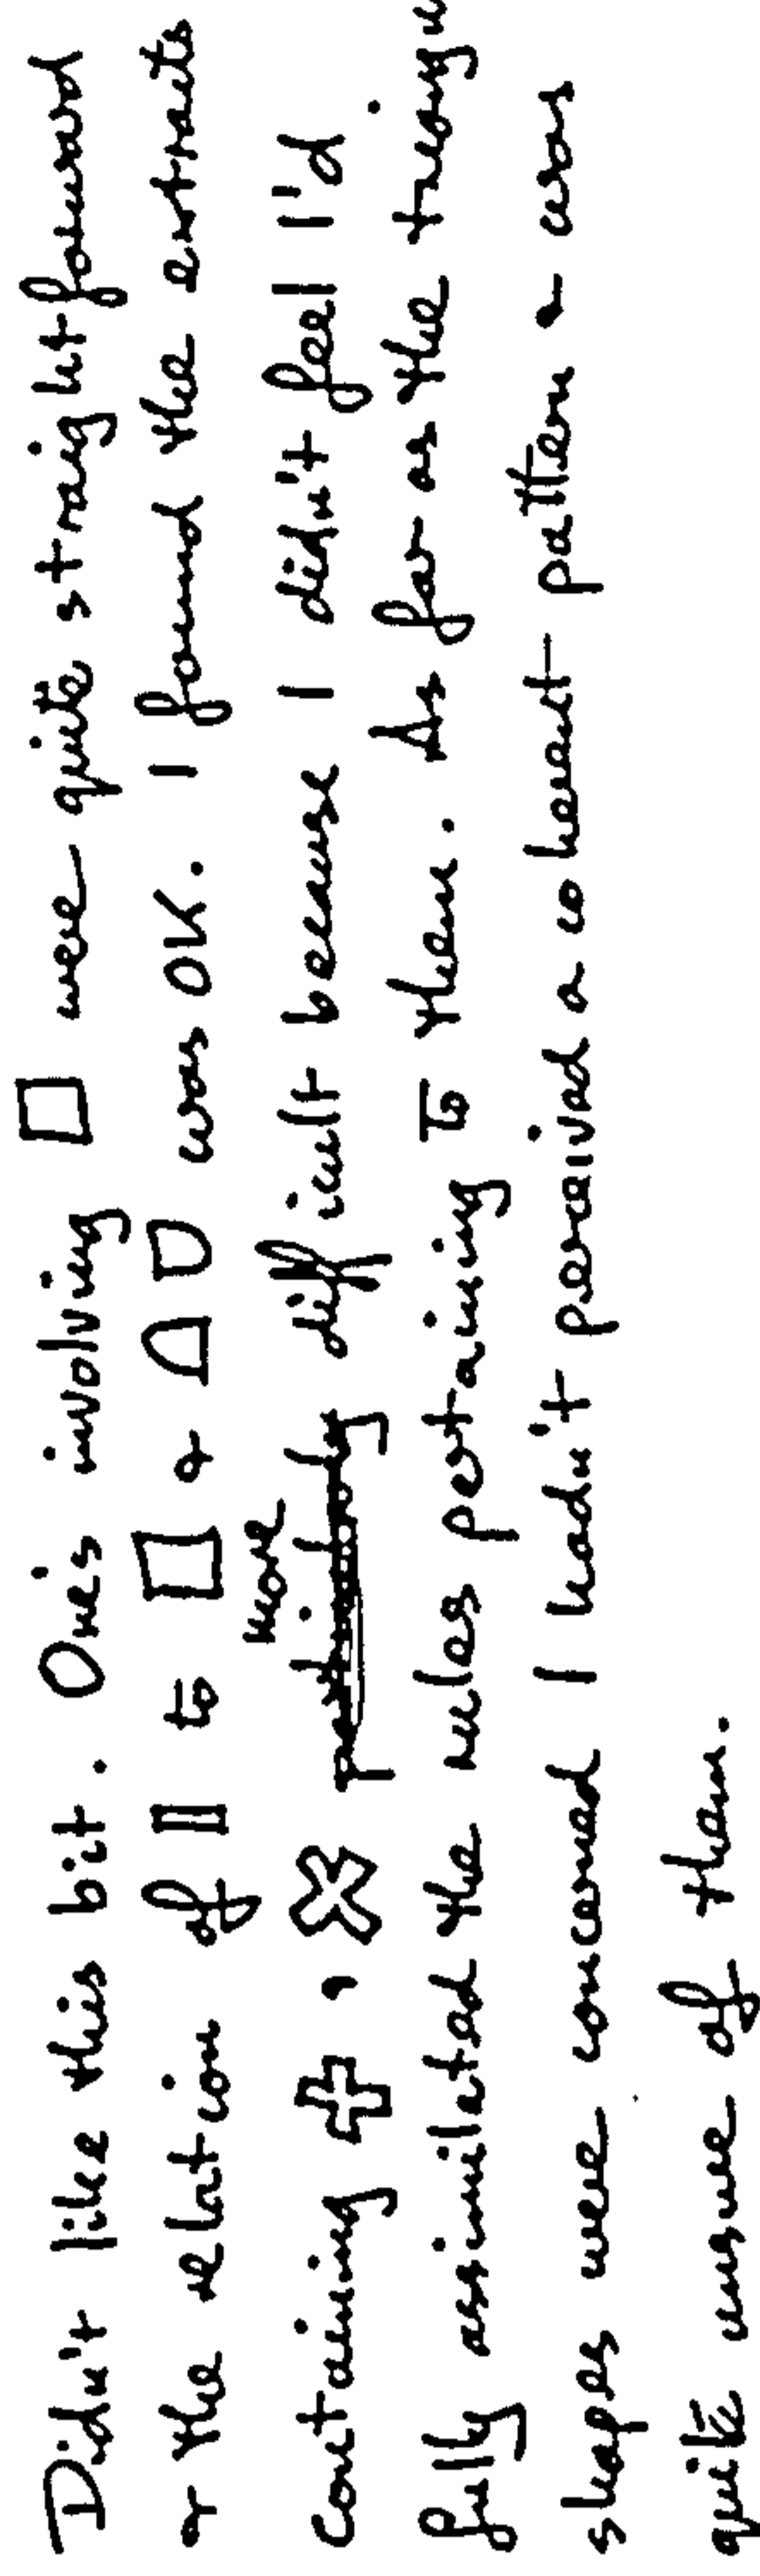 Didn't like this bit. One's involving □ were quite straight forward
& the relation of || to □ & △ ▽ was OK. I found the extracts
more
containing ✚, ✖ difficult because I didn't feel I'd
fully assimilated the rules pertaining to them. As far as the
shapes were concerned I hadn't perceived a coherent pattern & was
quite unsure of them.